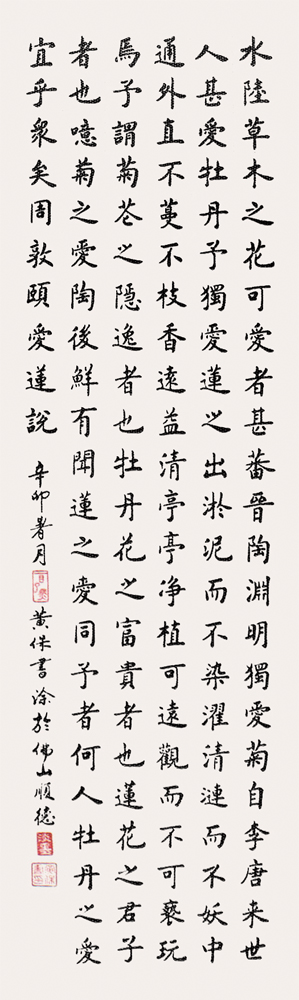 水陸草木之花可愛者甚蕃晉陶淵明獨愛菊自李唐来世
人甚愛牡丹予獨愛蓮之出淤泥而不染濯清漣而不妖中
通外直不蔓不枝香遠益清亭亭净植可遠觀而不可褻玩
焉予謂菊花之隱逸者也牡丹花之富貴者也蓮花之君子
者也噫菊之愛陶後鮮有聞蓮之愛同予者何人牡丹之愛
宜乎衆矣周敦頤愛蓮說
辛卯暑月黄侏書涂於佛山順德